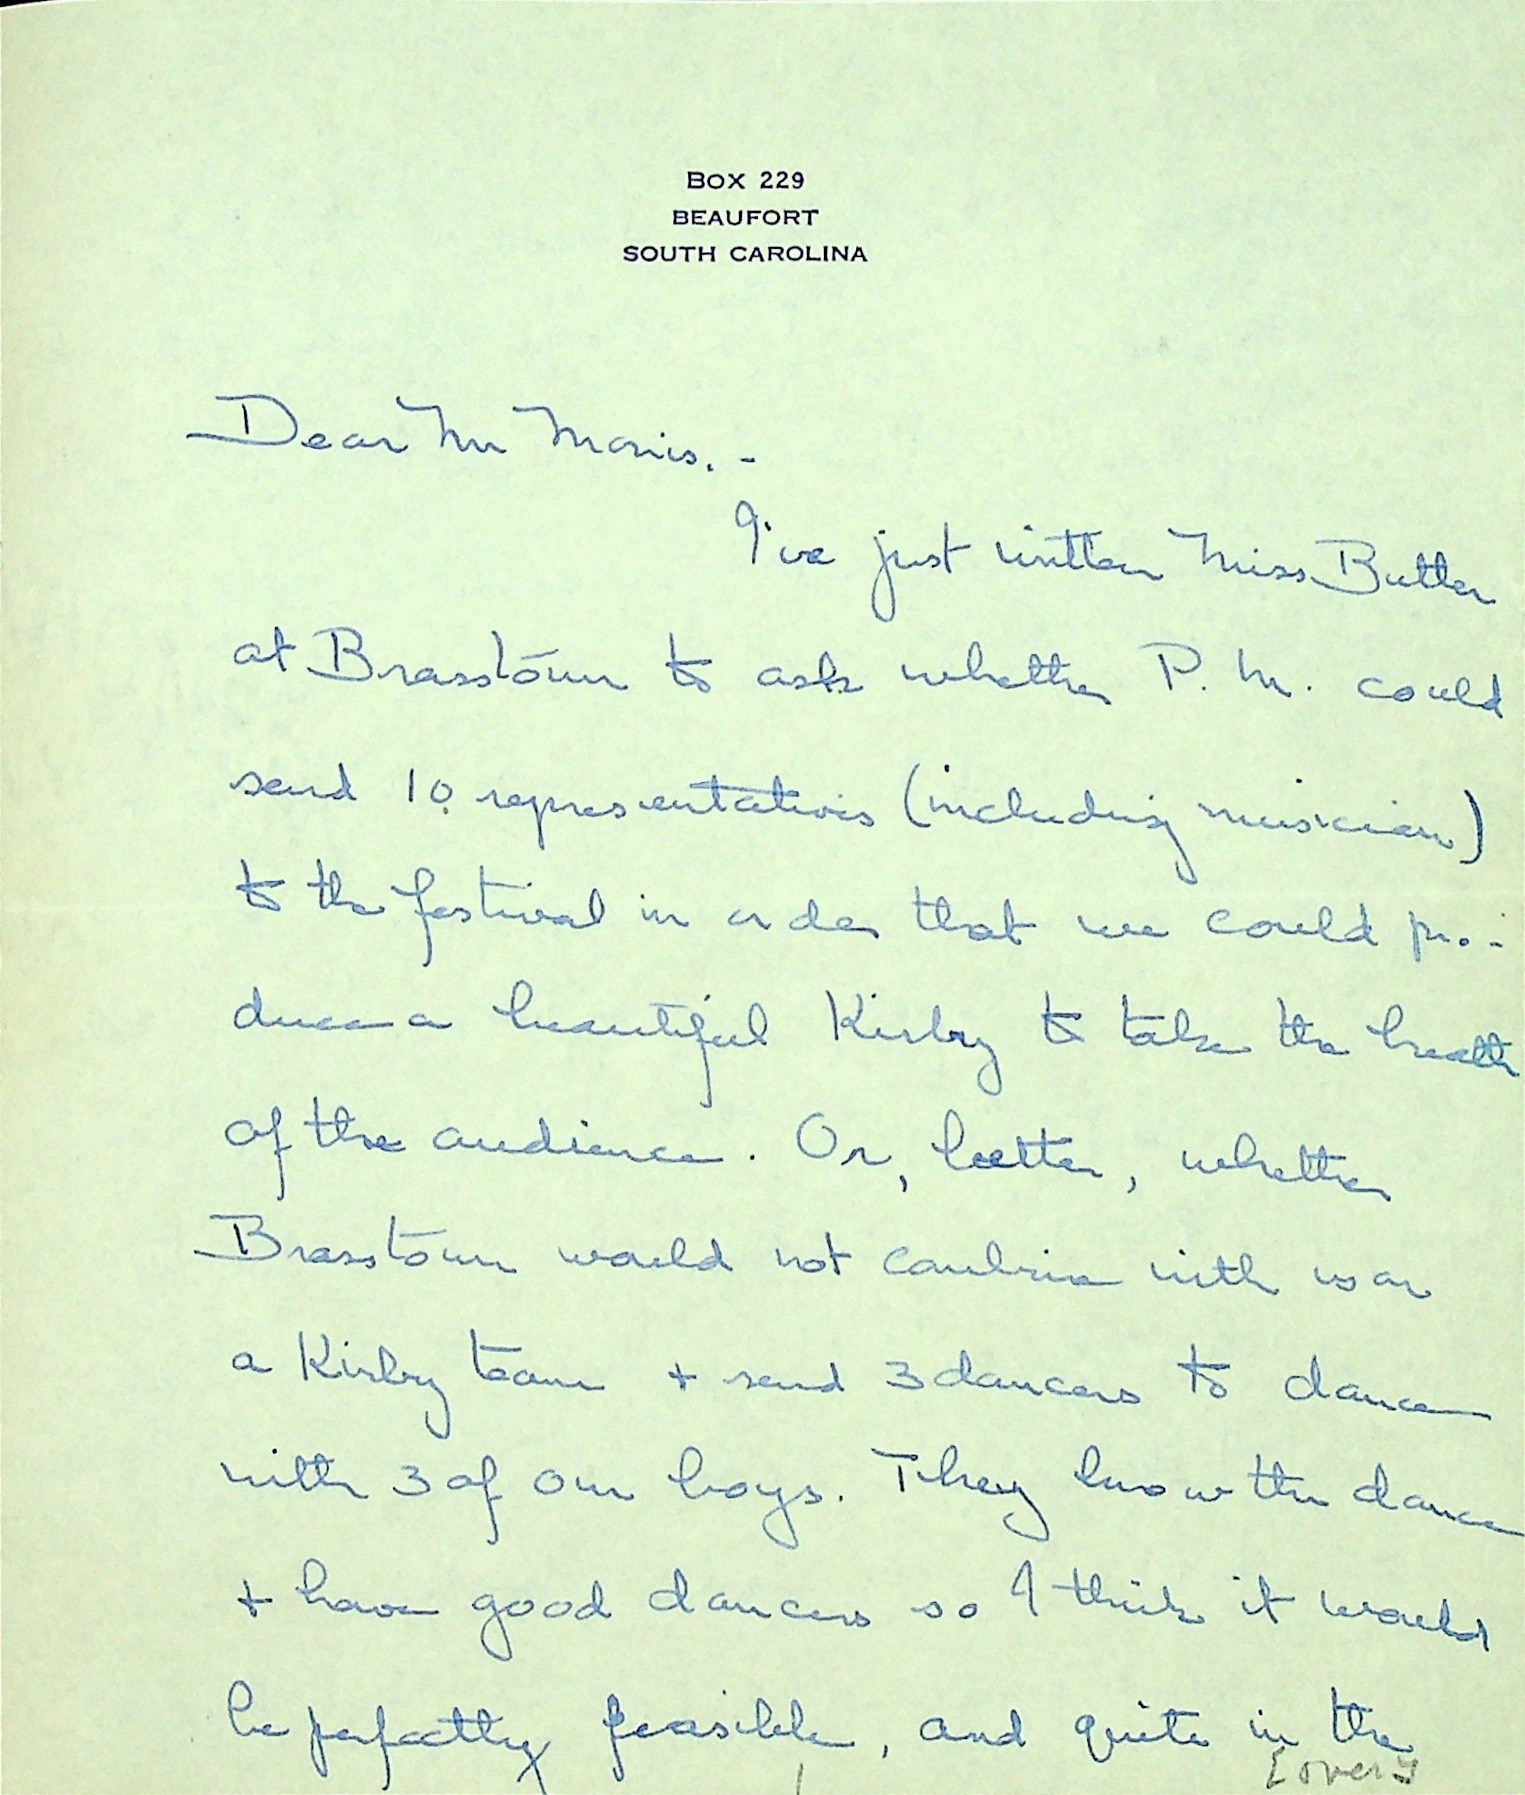 BOX 229
BEAUFORT
SOUTH CAROLINA
Dear Mr Morris. -
I've just written Miss Butler
at Brasstown to ask whether P. M. could
send 10 representatives (including musician)
to the festival in order that we could pro-
duce a beautiful Kirby to take the breath
of the audience. Or, better, whether
Brasstown would not combine with us on
a Kirby team + send 3 dancers to dance
with 3 of our boys. They know the dance
+ have good dancers so I think it would
be perfectly feasible, and quite in the
[over]